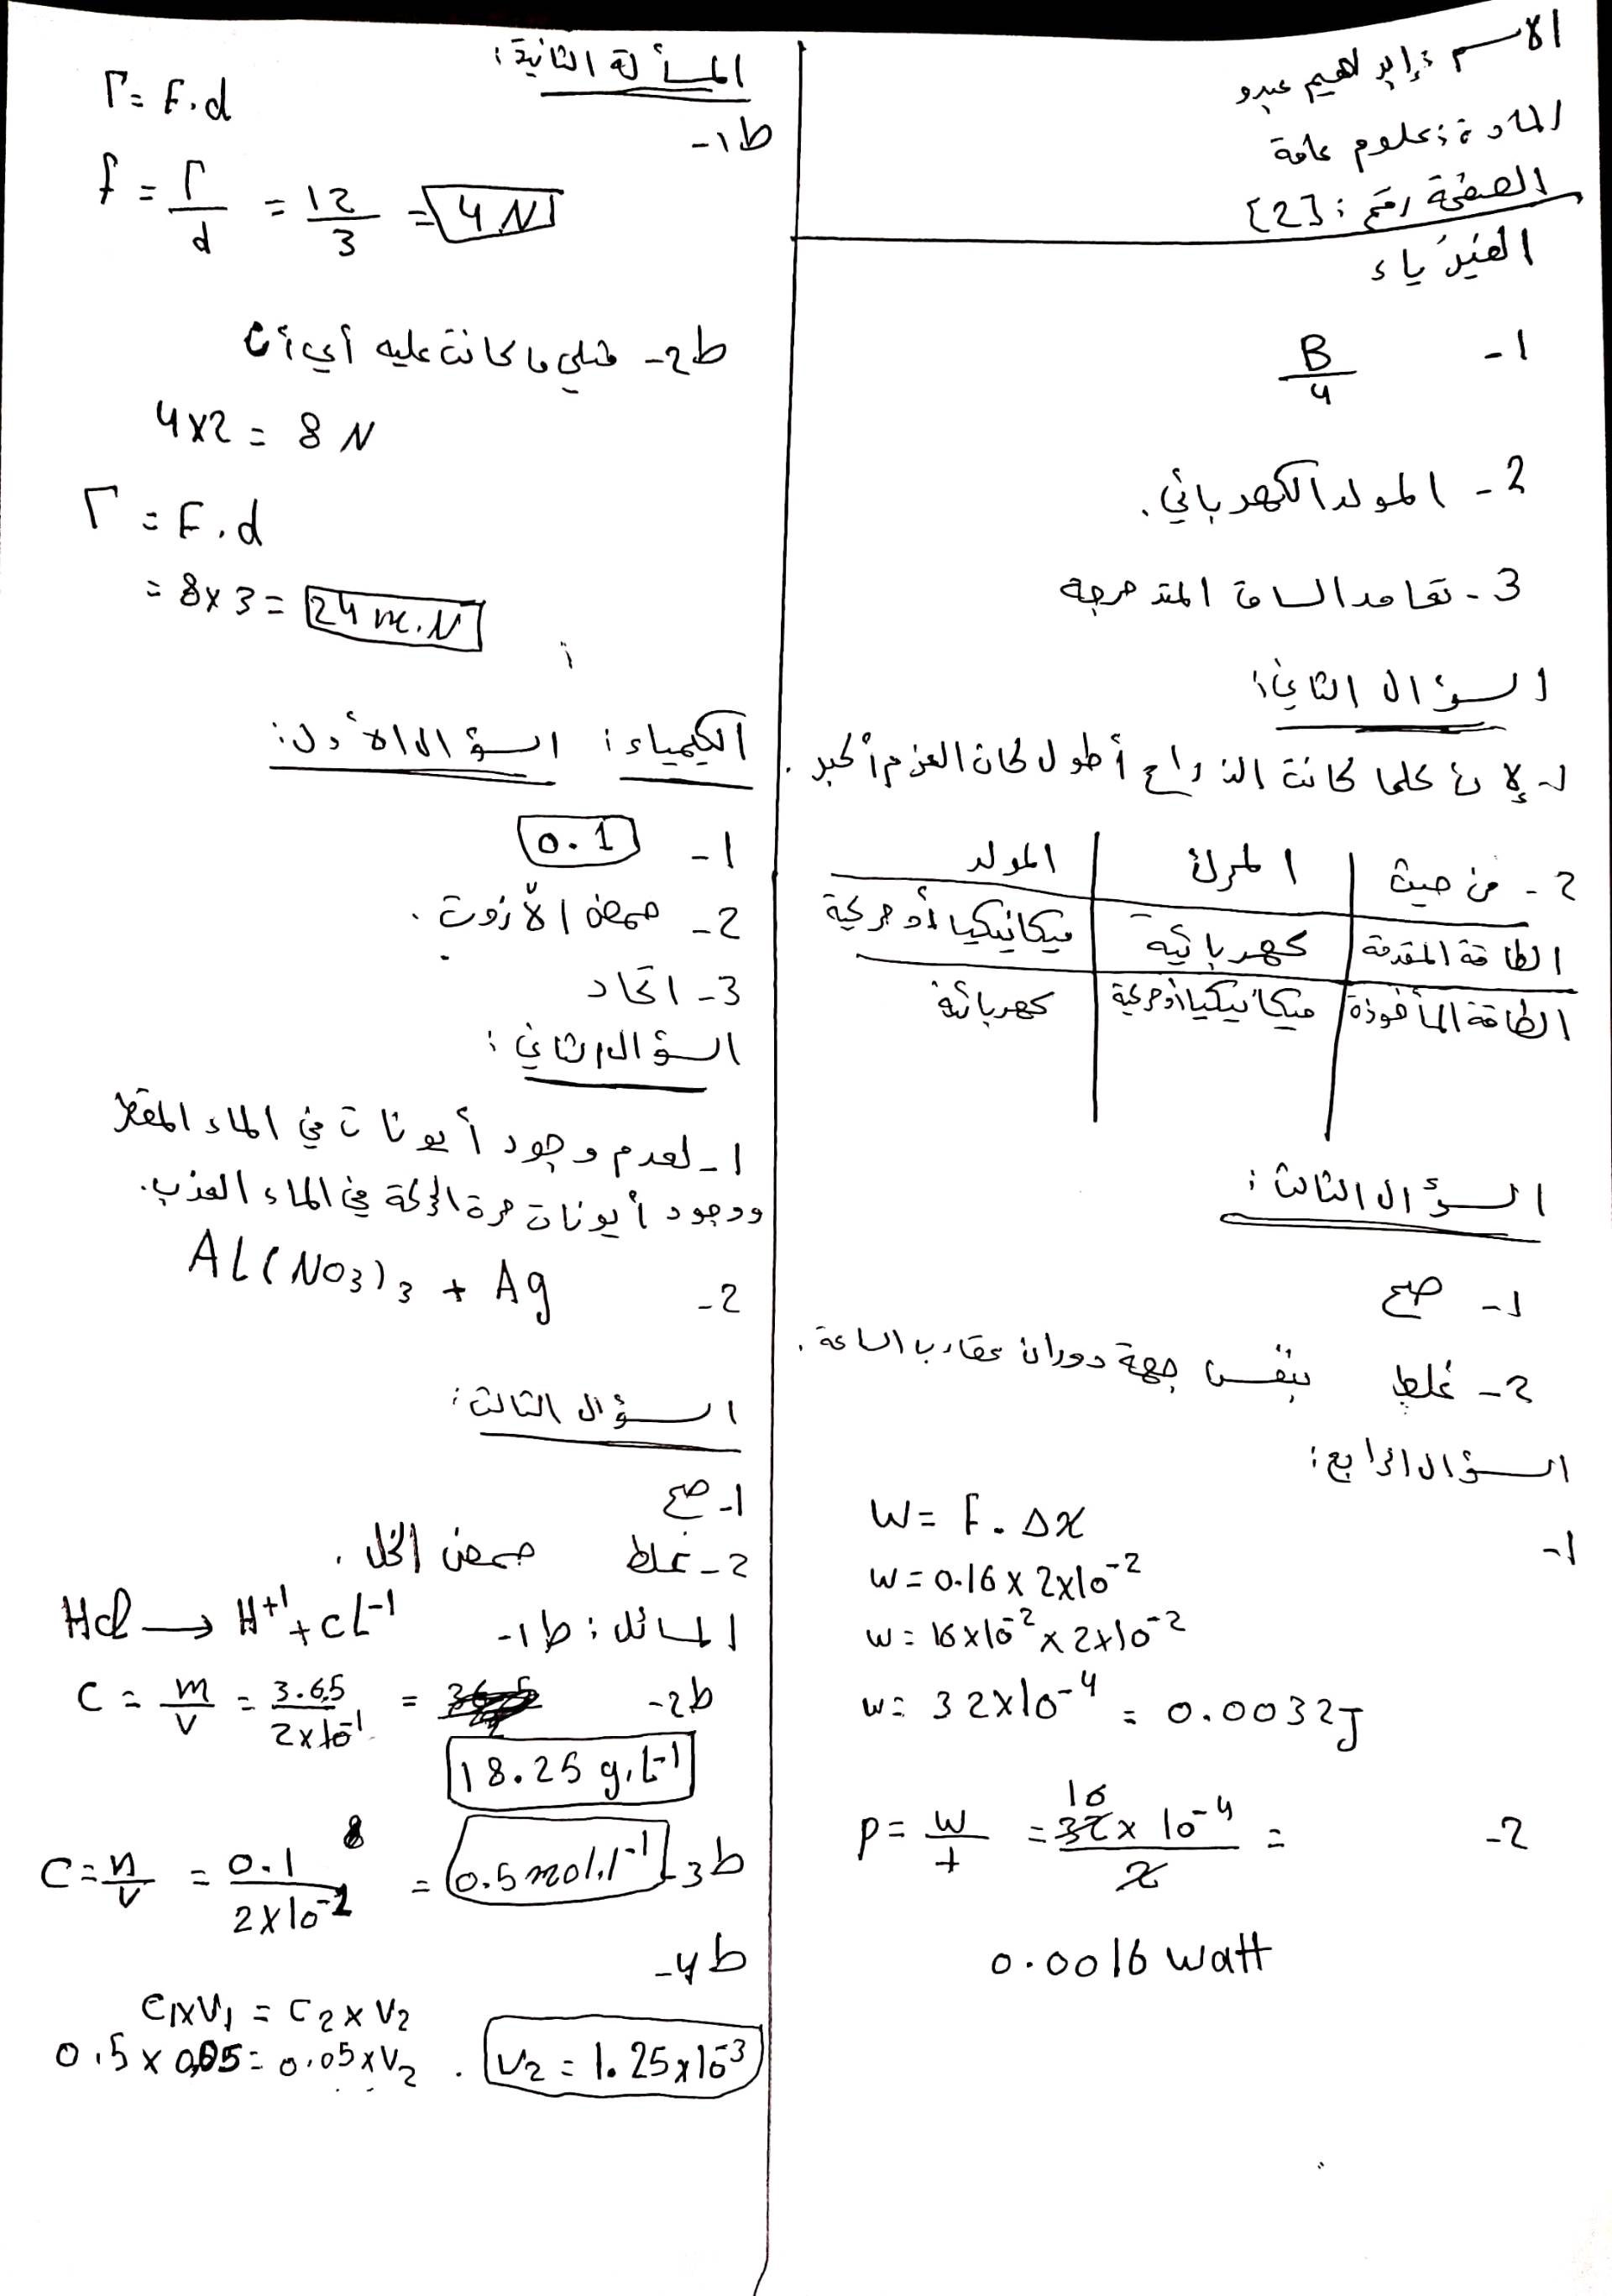 الاسم : إبراهيم عبدو
المادة : علوم عامة
الصفحة رقم : [2]
الفيزياء
1- B/4
2- المولد الكهربائي.
3- تعامد الساق المتدحرجة
السؤال الثاني:
1- لإن كلما كانت الذراع أطول كان العزم أكبر.
2- من حيث | المحرك | المولد
الطاقة المقدمة | كهربائية | ميكانيكيا أو حركية
الطاقة المأخوذة | ميكانيكيا أو حركية | كهربائية
السؤال الثالث:
1- صح
2- غلط بنفس جهة دوران عقارب الساعة.
السؤال الرابع:
1- W = F . Δx
w = 0.16 x 2x10^-2
w = 16x10^-2 x 2x10^-2
w = 32x10^-4 = 0.0032J
2- P = W/t = 32 x 10^-4 / 2 =
16
0.0016 watt
المسألة الثانية:
ط1-
Γ = F.d
f = Γ/d = 12/3 = 4 N
ط2- مثلي ما كانت عليه أي أن
4x2 = 8 N
Γ = F.d
= 8x3 = 24 m.N
الكيمياء : السؤال الأول:
1- 0.1
2- حمض الأزوت.
3- اتحاد
السؤال الثاني:
1- لعدم وجود أيونات في الماء المقطر
ووجود أيونات حرة الحركة في الماء العذب.
2- Al(NO3)3 + Ag
السؤال الثالث:
1- صح
2- غلط حمض الخل.
المسائل : ط1- Hcl → H^+1 + cL^-1
ط2- C = m/V = 3.65/2x10^-1 =
18.25 g.L^-1
ط3- C = n/V = 0.1/2x10^-1 = 0.5 mol.l^-1
ط4-
C1xV1 = C2xV2
0.5 x 0,05 = 0.05xV2 . V2 = 1.25x10^-3